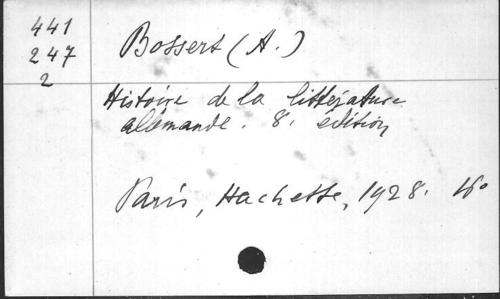 441
247
2
Bossert (A.)
Histoire de la littérature
allemande. 8. édition
Paris, Hachette, 1928. 16°